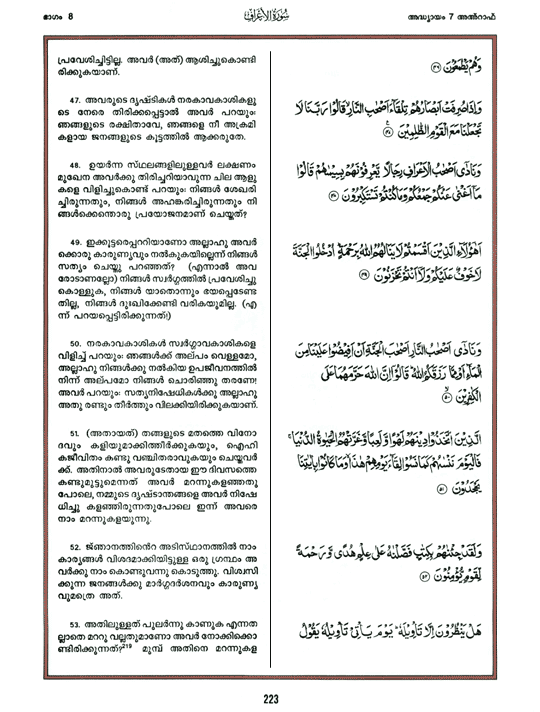 ഭാഗം 8
سُورَةُ الْأَعْرَافِ
അദ്ധ്യായം 7 അൽറാഫ്
പ്രവേശിച്ചിട്ടില്ല. അവർ (അത്) ആശിച്ചുകൊണ്ടി
രിക്കുകയാണ്.
47. അവരുടെ ദൃഷ്ടികൾ നരകാവകാശികളു
ടെ നേരെ തിരിക്കപ്പെട്ടാൽ അവർ പറയും:
ഞങ്ങളുടെ രക്ഷിതാവേ, ഞങ്ങളെ നീ അക്രമി
കളായ ജനങ്ങളുടെ കൂട്ടത്തിൽ ആക്കരുതേ.
48. ഉയർന്ന സ്ഥലങ്ങളിലുള്ളവർ ലക്ഷണം
മുഖേന അവർക്കു തിരിച്ചറിയാവുന്ന ചില ആളു
കളെ വിളിച്ചുകൊണ്ട് പറയും: നിങ്ങൾ ശേഖരി
ച്ചിരുന്നതും, നിങ്ങൾ അഹങ്കരിച്ചിരുന്നതും നി
ങ്ങൾക്കെന്തൊരു പ്രയോജനമാണ് ചെയ്തത്?
49. ഇക്കൂട്ടരെപ്പററിയാണോ അല്ലാഹു അവർ
ക്കൊരു കാരുണ്യവും നൽകുകയില്ലെന്ന് നിങ്ങൾ
സത്യം ചെയ്തു പറഞ്ഞത്? (എന്നാൽ അവ
രോടാണല്ലോ) നിങ്ങൾ സ്വർഗ്ഗത്തിൽ പ്രവേശിച്ചു
കൊള്ളുക, നിങ്ങൾ യാതൊന്നും ഭയപ്പെടേണ്ട
തില്ല, നിങ്ങൾ ദുഃഖിക്കേണ്ടി വരികയുമില്ല. (എ
ന്ന് പറയപ്പെട്ടിരിക്കുന്നത്!)
50. നരകാവകാശികൾ സ്വർഗ്ഗാവകാശികളെ
വിളിച്ച് പറയും: ഞങ്ങൾക്ക് അല്പം വെള്ളമോ,
അല്ലാഹു നിങ്ങൾക്കു നൽകിയ ഉപജീവനത്തിൽ
നിന്ന് അല്പമോ നിങ്ങൾ ചൊരിഞ്ഞു തരണേ!
അവർ പറയും: സത്യനിഷേധികൾക്കു അല്ലാഹു
അതു രണ്ടും തീർത്തും വിലക്കിയിരിക്കുകയാണ്.
51. (അതായത്) തങ്ങളുടെ മതത്തെ വിനോ
ദവും കളിയുമാക്കിത്തീർക്കുകയും, ഐഹി
കജീവിതം കണ്ടു വഞ്ചിതരാവുകയും ചെയ്തവർ
ക്ക്. അതിനാൽ അവരുടേതായ ഈ ദിവസത്തെ
കണ്ടുമുട്ടുമെന്നത് അവർ മറന്നുകളഞ്ഞതു
പോലെ, നമ്മുടെ ദൃഷ്ടാന്തങ്ങളെ അവർ നിഷേ
ധിച്ചു കളഞ്ഞിരുന്നതുപോലെ ഇന്ന് അവരെ
നാം മറന്നുകളയുന്നു.
52. ജ്ഞാനത്തിൻെറ അടിസ്ഥാനത്തിൽ നാം
കാര്യങ്ങൾ വിശദമാക്കിയിട്ടുള്ള ഒരു ഗ്രന്ഥം അ
വർക്കു നാം കൊണ്ടുവന്നു കൊടുത്തു. വിശ്വസി
ക്കുന്ന ജനങ്ങൾക്കു മാർഗ്ഗദർശനവും കാരുണ്യ
വുമത്രെ അത്.
53. അതിലുള്ളത് പുലർന്നു കാണുക എന്നത
ല്ലാതെ മററു വല്ലതുമാണോ അവർ നോക്കിക്കൊ
ണ്ടിരിക്കുന്നത്?219 മുമ്പ് അതിനെ മറന്നുകള
وَهُمْ يَطْمَعُونَ ٤٦
وَإِذَا صُرِفَتْ أَبْصَارُهُمْ تِلْقَاءَ أَصْحَابِ النَّارِ قَالُوا رَبَّنَا لَا
تَجْعَلْنَا مَعَ الْقَوْمِ الظَّالِمِينَ ٤٧
وَنَادَىٰ أَصْحَابُ الْأَعْرَافِ رِجَالًا يَعْرِفُونَهُمْ بِسِيمَاهُمْ قَالُوا
مَا أَغْنَىٰ عَنْكُمْ جَمْعُكُمْ وَمَا كُنْتُمْ تَسْتَكْبِرُونَ ٤٨
أَهَٰؤُلَاءِ الَّذِينَ أَقْسَمْتُمْ لَا يَنَالُهُمُ اللَّهُ بِرَحْمَةٍ ادْخُلُوا الْجَنَّةَ
لَا خَوْفٌ عَلَيْكُمْ وَلَا أَنْتُمْ تَحْزَنُونَ ٤٩
وَنَادَىٰ أَصْحَابُ النَّارِ أَصْحَابَ الْجَنَّةِ أَنْ أَفِيضُوا عَلَيْنَا مِنَ
الْمَاءِ أَوْ مِمَّا رَزَقَكُمُ اللَّهُ قَالُوا إِنَّ اللَّهَ حَرَّمَهُمَا عَلَى
الْكَافِرِينَ ٥٠
الَّذِينَ اتَّخَذُوا دِينَهُمْ لَهْوًا وَلَعِبًا وَغَرَّتْهُمُ الْحَيَاةُ الدُّنْيَا
فَالْيَوْمَ نَنْسَاهُمْ كَمَا نَسُوا لِقَاءَ يَوْمِهِمْ هَٰذَا وَمَا كَانُوا بِآيَاتِنَا
يَجْحَدُونَ ٥١
وَلَقَدْ جِئْنَاهُمْ بِكِتَابٍ فَصَّلْنَاهُ عَلَىٰ عِلْمٍ هُدًى وَرَحْمَةً
لِقَوْمٍ يُؤْمِنُونَ ٥٢
هَلْ يَنْظُرُونَ إِلَّا تَأْوِيلَهُ يَوْمَ يَأْتِي تَأْوِيلُهُ يَقُولُ
223